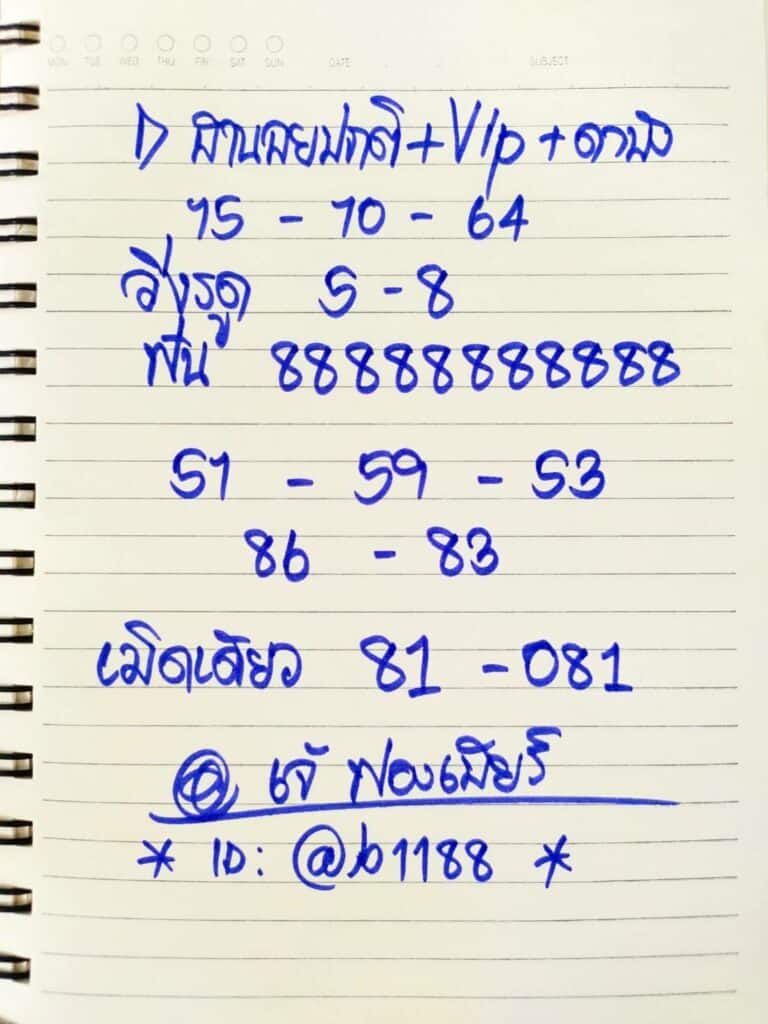 MON TUE WED THU FRI SAT SUN DATE SUBJECT
D ฮานอยปกติ+Vip+ดาวิง
15 - 10 - 64
วิ่งรูด 5 - 8
ฟัน 88888888888
51 - 59 - 53
86 - 83
เม็ดเดียว 81 - 081
เจ้ ฟองเบียร์
* ID: @b1188 *